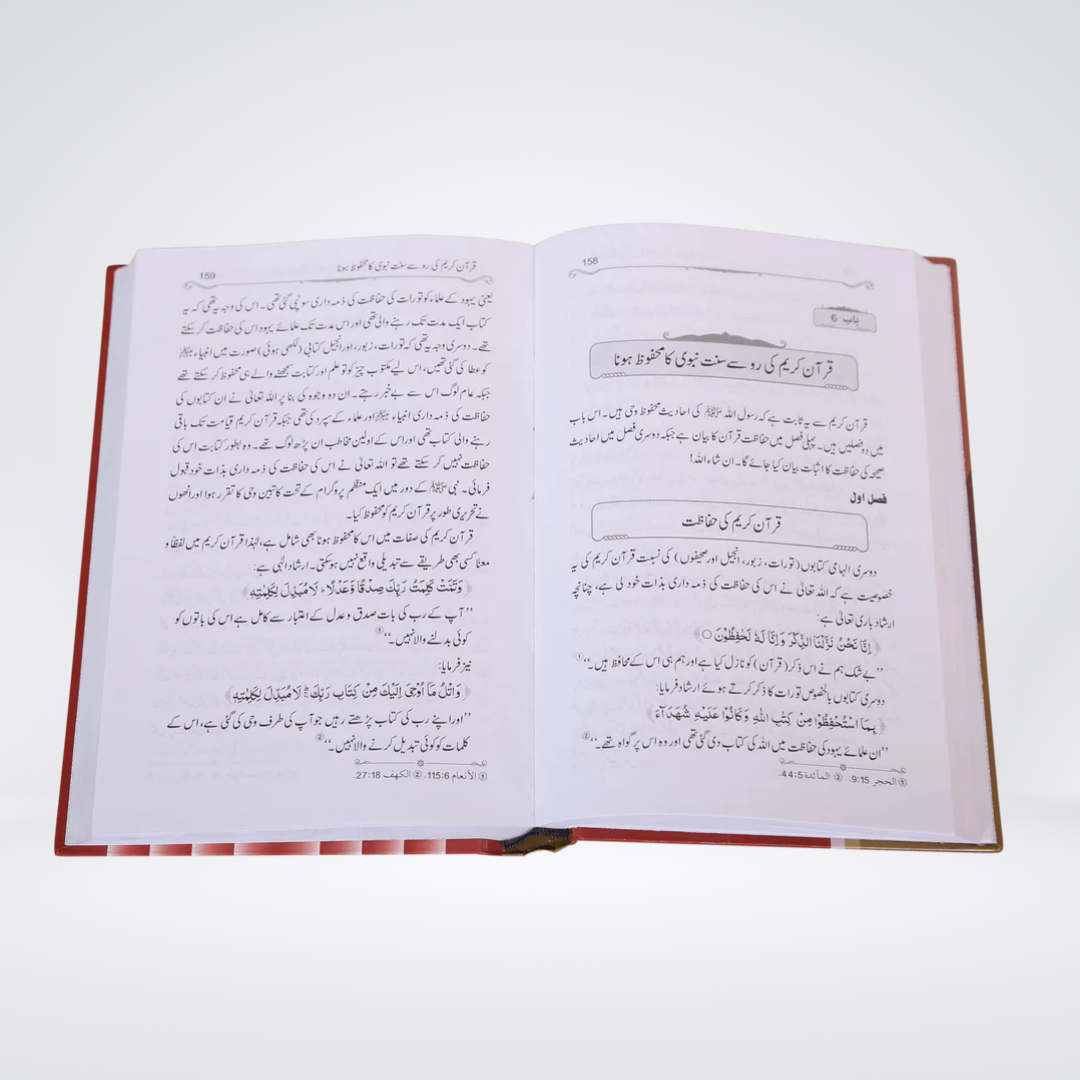 158
باب 6
قرآن کریم کی رو سے سنت نبوی کا محفوظ ہونا
قرآن کریم سے یہ ثابت ہے کہ رسول اللہ ﷺ کی احادیث محفوظ وحی ہیں۔ اس باب
میں دو فصلیں ہیں۔ پہلی فصل میں حفاظت قرآن کا بیان ہے جبکہ دوسری فصل میں احادیث
صحیحہ کی حفاظت کا اثبات بیان کیا جائے گا۔ ان شاء اللہ!
فصل اول
قرآن کریم کی حفاظت
دوسری الہامی کتابوں (تورات، زبور، انجیل اور صحیفوں) کی نسبت قرآن کریم کی یہ
خصوصیت ہے کہ اللہ تعالیٰ نے اس کی حفاظت کی ذمہ داری بذات خود لی ہے، چنانچہ
ارشاد باری تعالیٰ ہے:
﴿اِنَّا نَحْنُ نَزَّلْنَا الذِّكْرَ وَاِنَّا لَهٗ لَحٰفِظُوْنَ ○﴾
’’بے شک ہم نے اس ذکر (قرآن) کو نازل کیا ہے اور ہم ہی اس کے محافظ ہیں۔‘‘①
دوسری کتابوں بالخصوص تورات کا ذکر کرتے ہوئے ارشاد فرمایا:
﴿بِمَا اسْتُحْفِظُوْا مِنْ كِتٰبِ اللّٰهِ وَكَانُوْا عَلَيْهِ شُهَدَآءَ﴾
’’ان علمائے یہود کی حفاظت میں اللہ کی کتاب دی گئی تھی اور وہ اس پر گواہ تھے۔‘‘②
① الحجر 9:15. ② المآئدة 44:5.
قرآن کریم کی رو سے سنت نبوی کا محفوظ ہونا 159
یعنی یہود کے علماء کو تورات کی حفاظت کی ذمہ داری سونپی گئی تھی۔ اس کی وجہ یہ تھی کہ یہ
کتاب ایک مدت تک رہنے والی تھی اور اس مدت تک علمائے یہود اس کی حفاظت کر سکتے
تھے۔ دوسری وجہ یہ تھی کہ تورات، زبور، اور انجیل کتابی (لکھی ہوئی) صورت میں انبیاء
کو عطا کی گئی تھیں، اس لیے مکتوب چیز کو تو علم اور کتابت سمجھنے والے ہی محفوظ کر سکتے تھے
جبکہ عام لوگ اس سے بے خبر رہتے۔ ان دو وجوہ کی بنا پر اللہ تعالیٰ نے ان کتابوں کی
حفاظت کی ذمہ داری انبیاء اور علماء کے سپرد کی تھی جبکہ قرآن کریم قیامت تک باقی
رہنے والی کتاب تھی اور اس کے اولین مخاطب ان پڑھ لوگ تھے۔ وہ بطور کتابت اس کی
حفاظت نہیں کر سکتے تھے تو اللہ تعالیٰ نے اس کی حفاظت کی ذمہ داری بذات خود قبول
فرمائی۔ نبی ﷺ کے دور میں ایک منظم پروگرام کے تحت کاتبین وحی کا تقرر ہوا اور انھوں
نے تحریری طور پر قرآن کریم کو محفوظ کیا۔
قرآن کریم کی صفات میں اس کا محفوظ ہونا بھی شامل ہے، لہٰذا قرآن کریم میں لفظاً و
معناً کسی بھی طریقے سے تبدیلی واقع نہیں ہو سکتی۔ ارشاد الٰہی ہے:
﴿وَتَمَّتْ كَلِمَتُ رَبِّكَ صِدْقًا وَّعَدْلًا ۭ لَا مُبَدِّلَ لِكَلِمٰتِهٖ﴾
’’آپ کے رب کی بات صدق و عدل کے اعتبار سے کامل ہے اس کی باتوں کو
کوئی بدلنے والا نہیں۔‘‘①
نیز فرمایا:
﴿وَاتْلُ مَآ اُوْحِيَ اِلَيْكَ مِنْ كِتَابِ رَبِّكَ ۚ لَا مُبَدِّلَ لِكَلِمٰتِهٖ﴾
’’اور اپنے رب کی کتاب پڑھتے رہیں جو آپ کی طرف وحی کی گئی ہے، اس کے
کلمات کو کوئی تبدیل کرنے والا نہیں۔‘‘②
① الأنعام 115:6. ② الكهف 27:18.